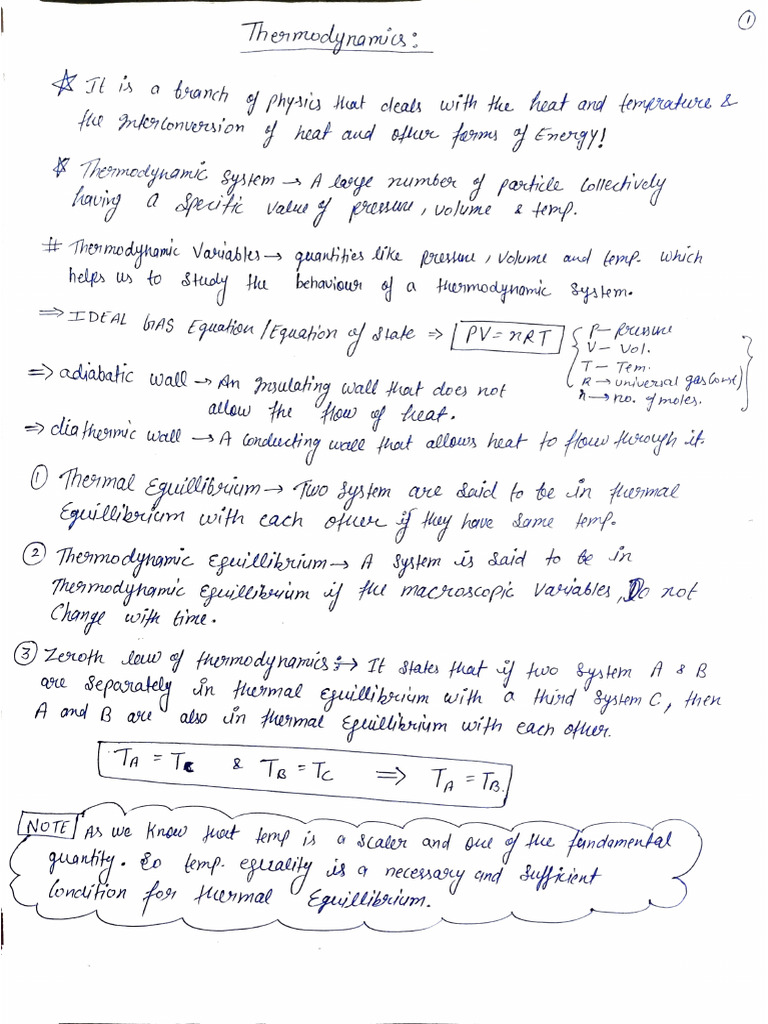 ①
Thermodynamics:
☆ It is a branch of physics that deals with the heat and temprature &
the Interconversion of heat and other forms of Energy!
☆ Thermodynamic System → A large number of particle collectively
having a specific value of pressure, volume & temp.
# Thermodynamic Variables → quantities like pressure, volume and temp. which
helps us to study the behaviour of a thermodynamic system.
⇒ IDEAL GAS Equation/Equation of State ⇒ PV = nRT
P - Pressure
V - Vol.
T - Tem.
R → universal gas Const
n → no. of moles.
⇒ adiabatic wall → An Insulating wall that does not
allow the flow of heat.
⇒ diathermic wall → A conducting wall that allows heat to flow through it.
① Thermal Equillibrium → Two System are said to be in thermal
Equillibrium with each other if they have same temp.
② Thermodynamic Equillibrium → A system is said to be in
Thermodynamic Equillibrium if the macroscopic Variables, Do not
Change with time.
③ Zeroth law of thermodynamics :→ It states that if two system A & B
are separately in thermal Equillibrium with a third system C, then
A and B are also in thermal Equillibrium with each other.
T_A = T_C & T_B = T_C ⇒ T_A = T_B.
NOTE As we know that temp is a scaler and one of the fundamental
quantity. So temp. equality is a necessary and sufficient
Condition for thermal Equillibrium.